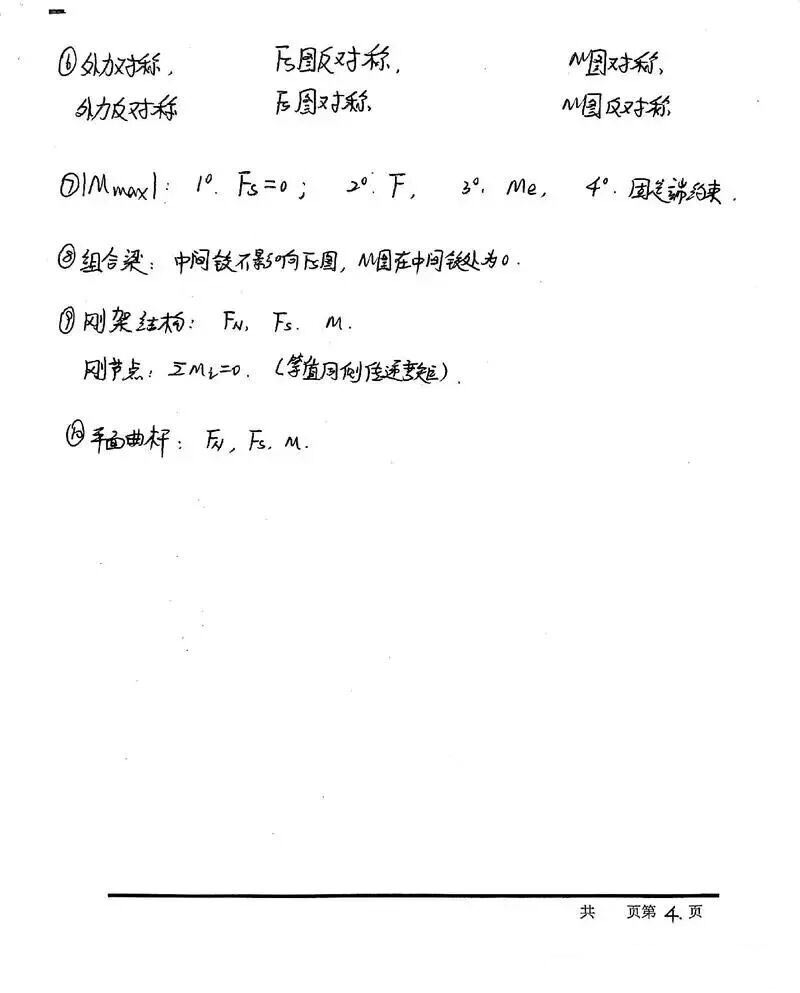 ⑥外力对称, Fs图反对称, M图对称,
外力反对称 Fs图对称, M图反对称
⑦|Mmax|: 1°. Fs=0; 2°. F, 3°. Me, 4°. 固定端约束.
⑧组合梁: 中间铰不影响Fs图, M图在中间铰处为0.
⑨刚架结构: FN, Fs. M.
刚节点: ΣMi=0. (等值同侧传递弯矩).
⑩平面曲杆: FN, Fs. M.
共 页第 4. 页